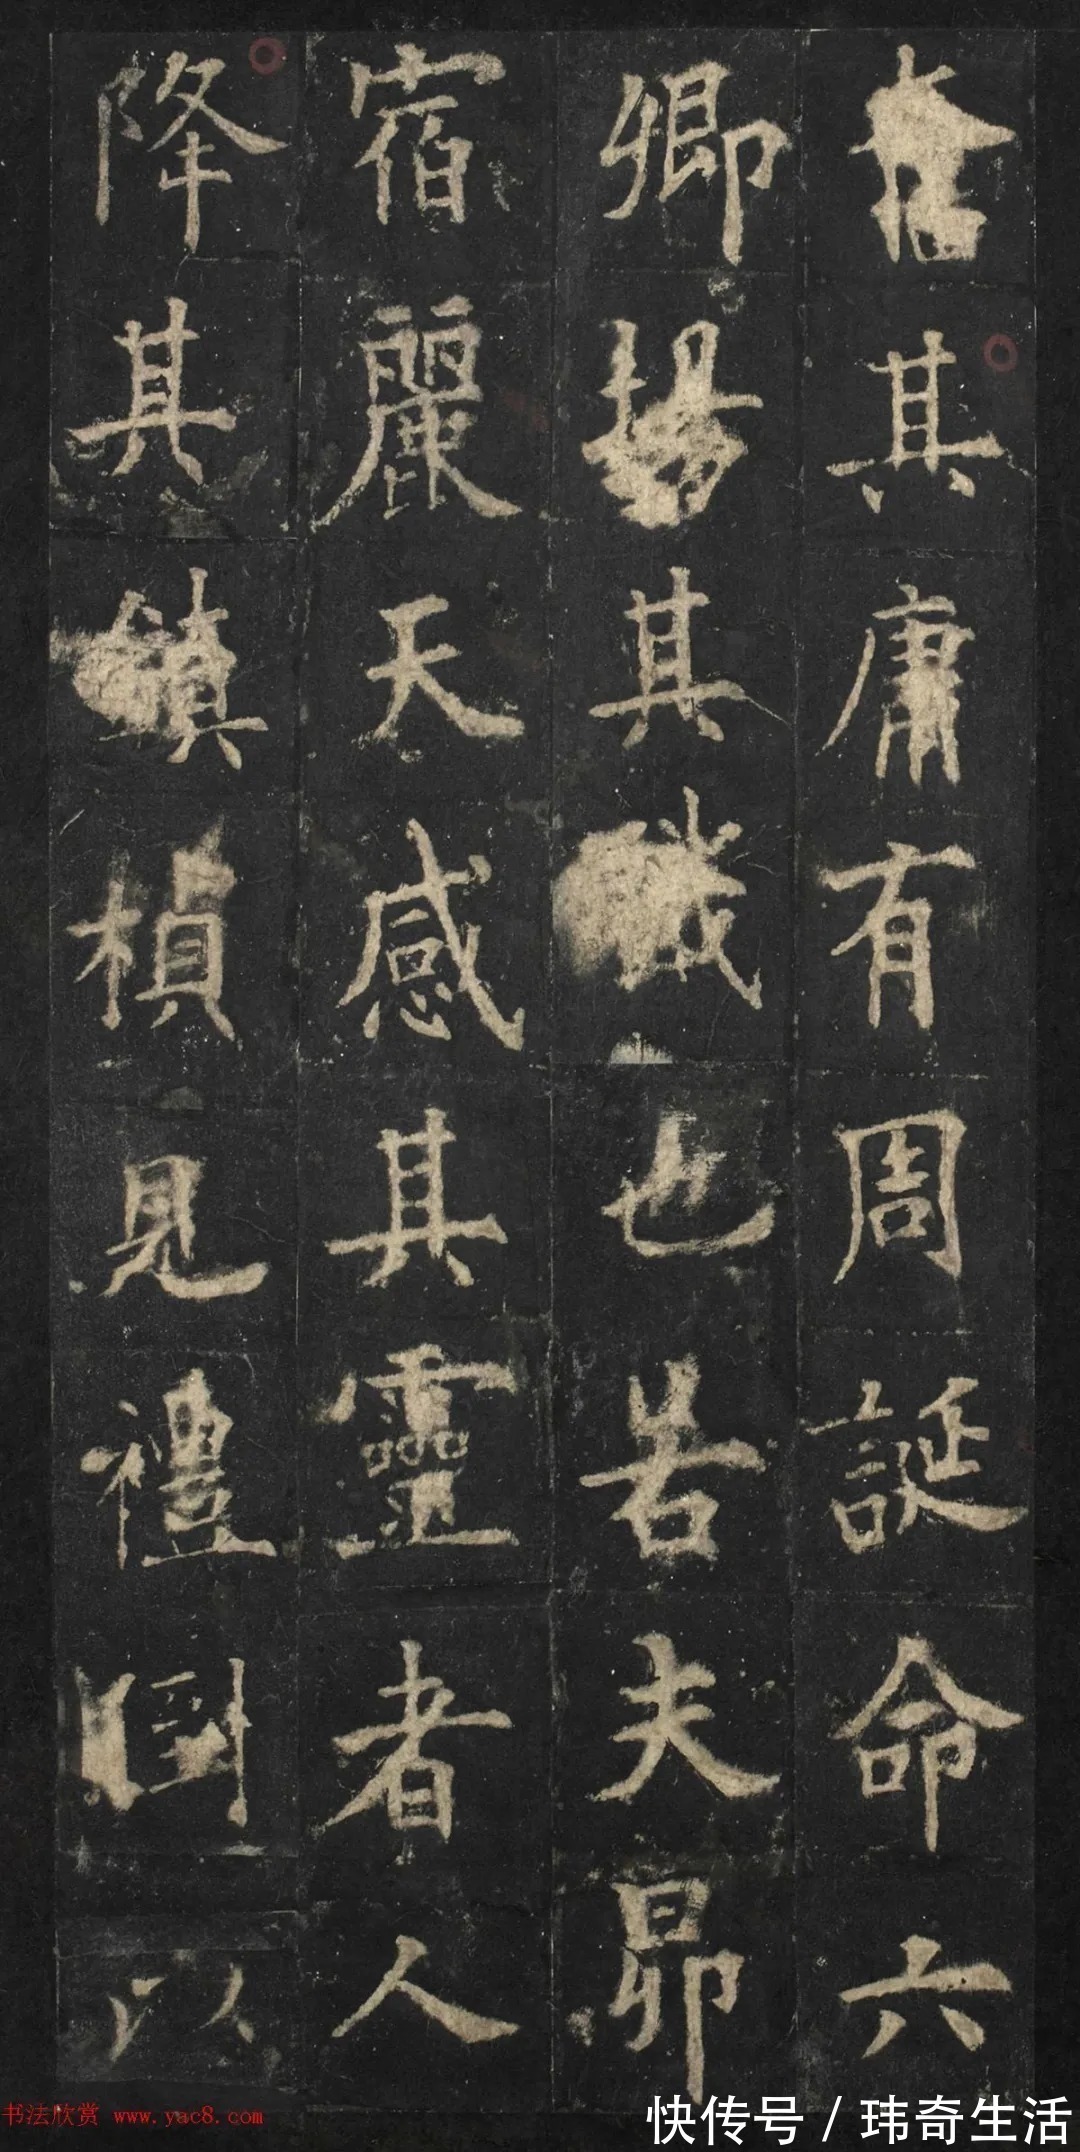 其庸有周誕命六
卿揚其職也若夫昴
宿麗天感其靈者人
降其鎮楨見禮闘以
书法欣赏 www.yac8.com
快传号 / 玮奇生活